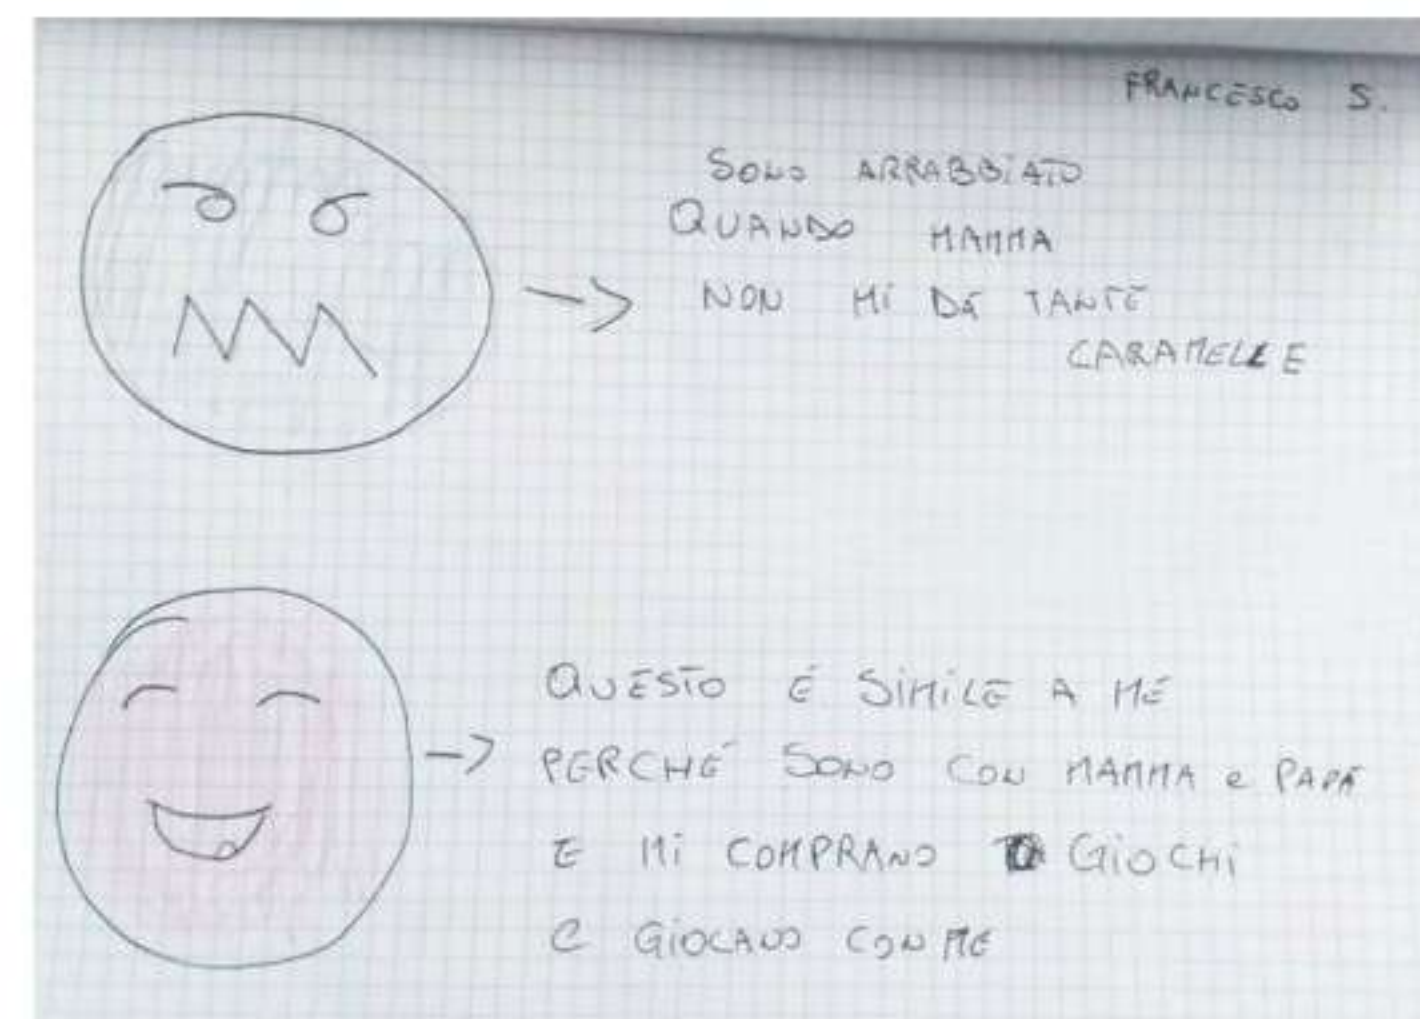 FRANCESCO S.
SONO ARRABBiATO
QUANDO MAMMA
NON Mi DÁ TANTE
CARAMELLE
QUESTO É SiMiLE A ME
PERCHÉ SONO CON MAMMA e PAPÁ
E Mi COMPRANO GiOCHi
E GiOCANO CON ME